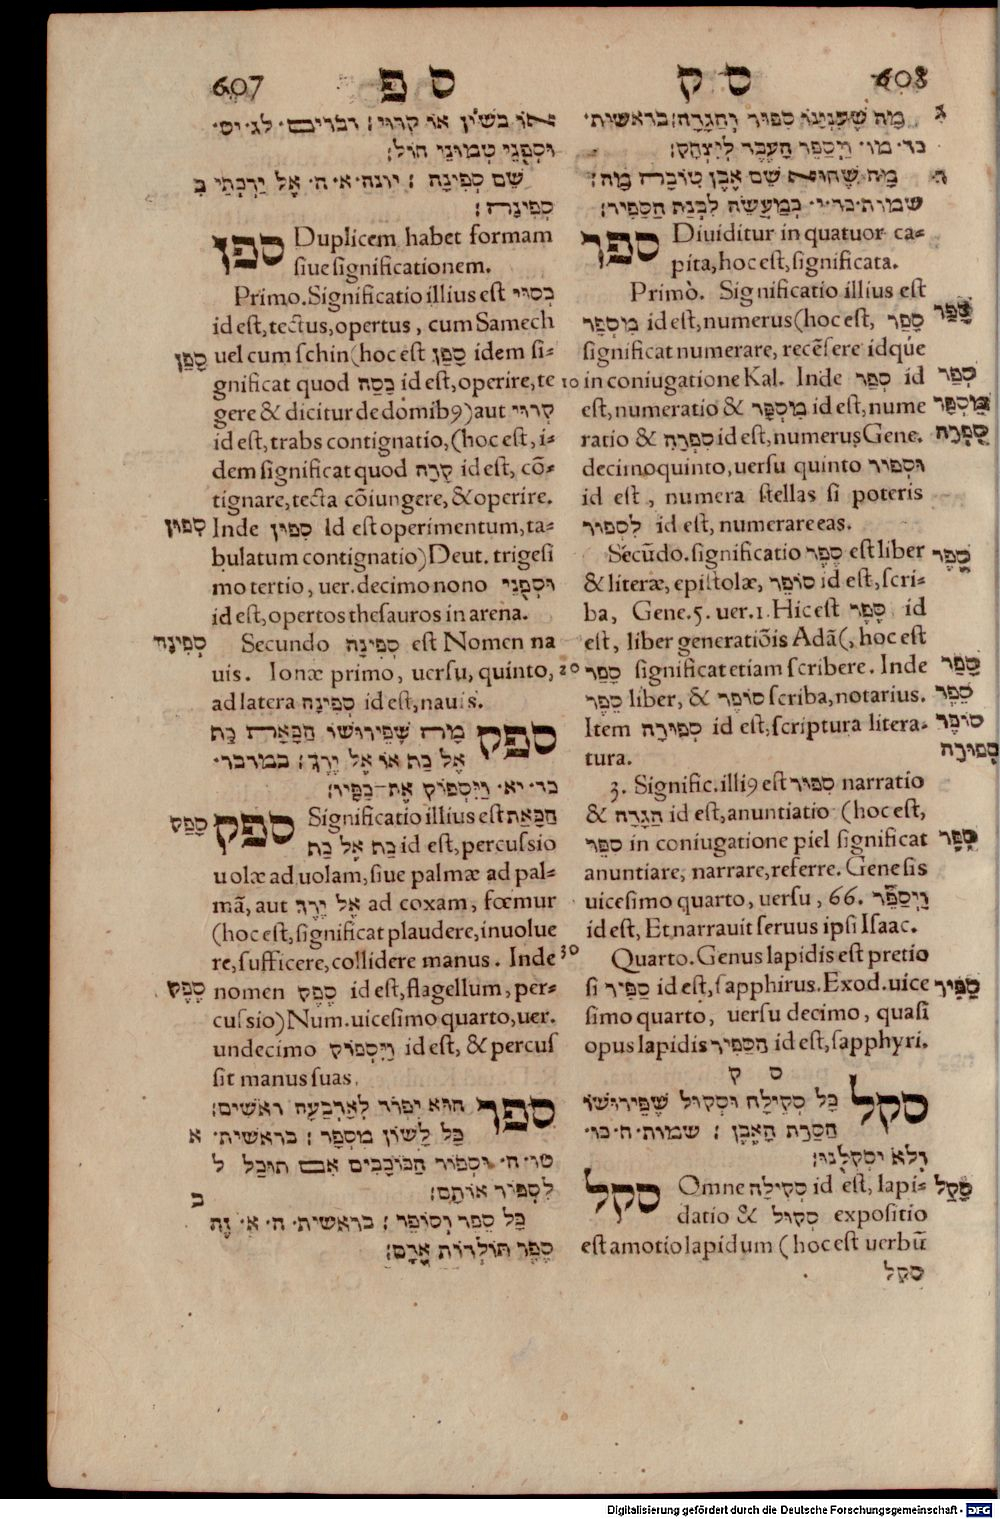 607 ס פ
או בשין או קרוי׃ דברים· לג· יט·
וּסְפֻנֵי טְמוּנֵי חוֹל׃
שֵׁם סְפִינָה ׃ יונה· א· ה· אֶל יַרְכְּתֵי ב
סְפִינָה׃
ספן Duplicem habet formam
siue significationem.
Primo. Significatio illius est כִּסּוּי
id est, tectus, opertus, cum Samech
סָפַן uel cum schin (hoc est סָפַן idem si=
gnificat quod כָּסָה id est, operire, te
gere & dicitur de domib9) aut קֵרוּי
id est, trabs contignatio, (hoc est, i=
dem significat quod קָרָה id est, cō=
tignare, tecta cōiungere, & operire.
סִפּוּן Inde סִפּוּן Id est operimentum, ta=
bulatum contignatio) Deut. trigesi
mo tertio, uer. decimo nono וּסְפֻנֵי
id est, opertos thesauros in arena.
סְפִינָה Secundo סְפִינָה est Nomen na
uis. Ionæ primo, uersu, quinto,
ad latera סְפִינָה id est, nauis.
ספק מָה שֶׁפֵּירוּשׁוֹ הַכָּאָה כַּף
אֶל כַּף אוֹ אֶל יֶרֶךְ׃ במדבר·
כד· יא· וַיִּסְפּוֹק אֶת־כַּפָּיו׃
סָפַק ספק Significatio illius est הַכָּאַת
כַּף אֶל כַּף id est, percussio
uolæ ad uolam, siue palmæ ad pal=
mā, aut אֶל יֶרֶךְ ad coxam, fœmur
(hoc est, significat plaudere, inuolue
re, sufficere, collidere manus. Inde
סֶפֶק nomen סֶפֶק id est, flagellum, per=
cussio) Num. uicesimo quarto, uer.
undecimo וַיִּסְפּוֹק id est, & percus
sit manus suas.
ספר הוּא יִפּוֹר לְאַרְבָּעָה רָאשִׁים׃
כָּל לְשׁוֹן מִסְפָּר ׃ בראשית· א
טו· ה· וּסְפוֹר הַכּוֹכָבִים אִם תּוּכַל ל
לִסְפּוֹר אוֹתָם׃
ב
כָּל סֵפֶר וְסוֹפֵר ׃ בראשית· ה· א· זֶה
סֵפֶר תּוֹלְדוֹת אָדָם׃
ס ק 608
מַה שֶּׁעִנְיָנוֹ סִפּוּר וְהַגָּדָה׃ בראשית· ג
כד· סו· וַיְסַפֵּר הָעֶבֶד לְיִצְחָק׃
מַה שֶּׁהוּא שֵׁם אֶבֶן טוֹבָה מָה׃ ד
שמות· כד· י· כְּמַעֲשֵׂה לִבְנַת הַסַּפִּיר׃
ספר Diuiditur in quatuor ca=
pita, hoc est, significata.
Primò. Significatio illius est
מִסְפָּר id est, numerus (hoc est, סָפַר סָפַר
significat numerare, recēsere idque
10 in coniugatione Kal. Inde סְפָר id סְפָר
est, numeratio & מִסְפָּר id est, nume מִסְפָּר
ratio & סִפְרָה id est, numerus Gene. סִפְרָה
decimoquinto, uersu quinto וּסְפוֹר
id est, numera stellas si poteris
לִסְפּוֹר id est, numerare eas.
Secūdo. significatio סֵפֶר est liber סֵפֶר
& literæ, epistolæ, סוֹפֵר id est, scri=
ba, Gene. 5. uer. 1. Hic est סֵפֶר id
est, liber generatiōis Adā (, hoc est
20 סָפַר significat etiam scribere. Inde סָפַר
סֵפֶר liber, & סוֹפֵר scriba, notarius. סֵפֶר
Item סְפוֹרָה id est, scriptura litera= סוֹפֵר
tura. סְפוֹרָה
3. Signific. illi9 est סִפּוּר narratio
& הַגָּדָה id est, anuntiatio (hoc est,
סִפֵּר in coniugatione piel significat סִפֵּר
anuntiare, narrare, referre. Genesis
uicesimo quarto, uersu, 66. וַיְסַפֵּר
id est, Et narrauit seruus ipsi Isaac.
30 Quarto. Genus lapidis est pretio
si סַפִּיר id est, sapphirus. Exod. uice סַפִּיר
simo quarto, uersu decimo, quasi
opus lapidis הַסַּפִּיר id est, sapphyri.
ס ק
סקל כָּל סְקִילָה וְסִקּוּל שֶׁפֵּירוּשׁוֹ
הֲסָרַת הָאֶבֶן ׃ שמות· ח· כו·
וְלֹא יִסְקְלֻנוּ׃
סקל Omne סְקִילָה id est, lapi= סָקַל
datio & סִקּוּל expositio
est amotio lapidum (hoc est uerbū
סקל
Digitalisierung gefördert durch die Deutsche Forschungsgemeinschaft - DFG